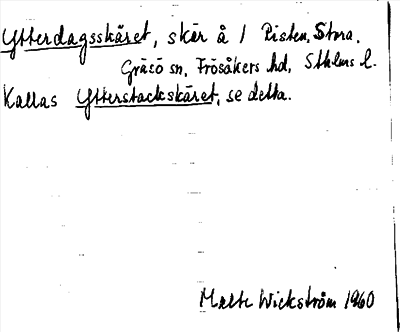 Ytterdagsskäret, skär å / Risten, Stora.
Gräsö sn, Frösåkers hd, Sthlms l.
Kallas Ytterstackskäret, se detta.
Malte Wickström 1960